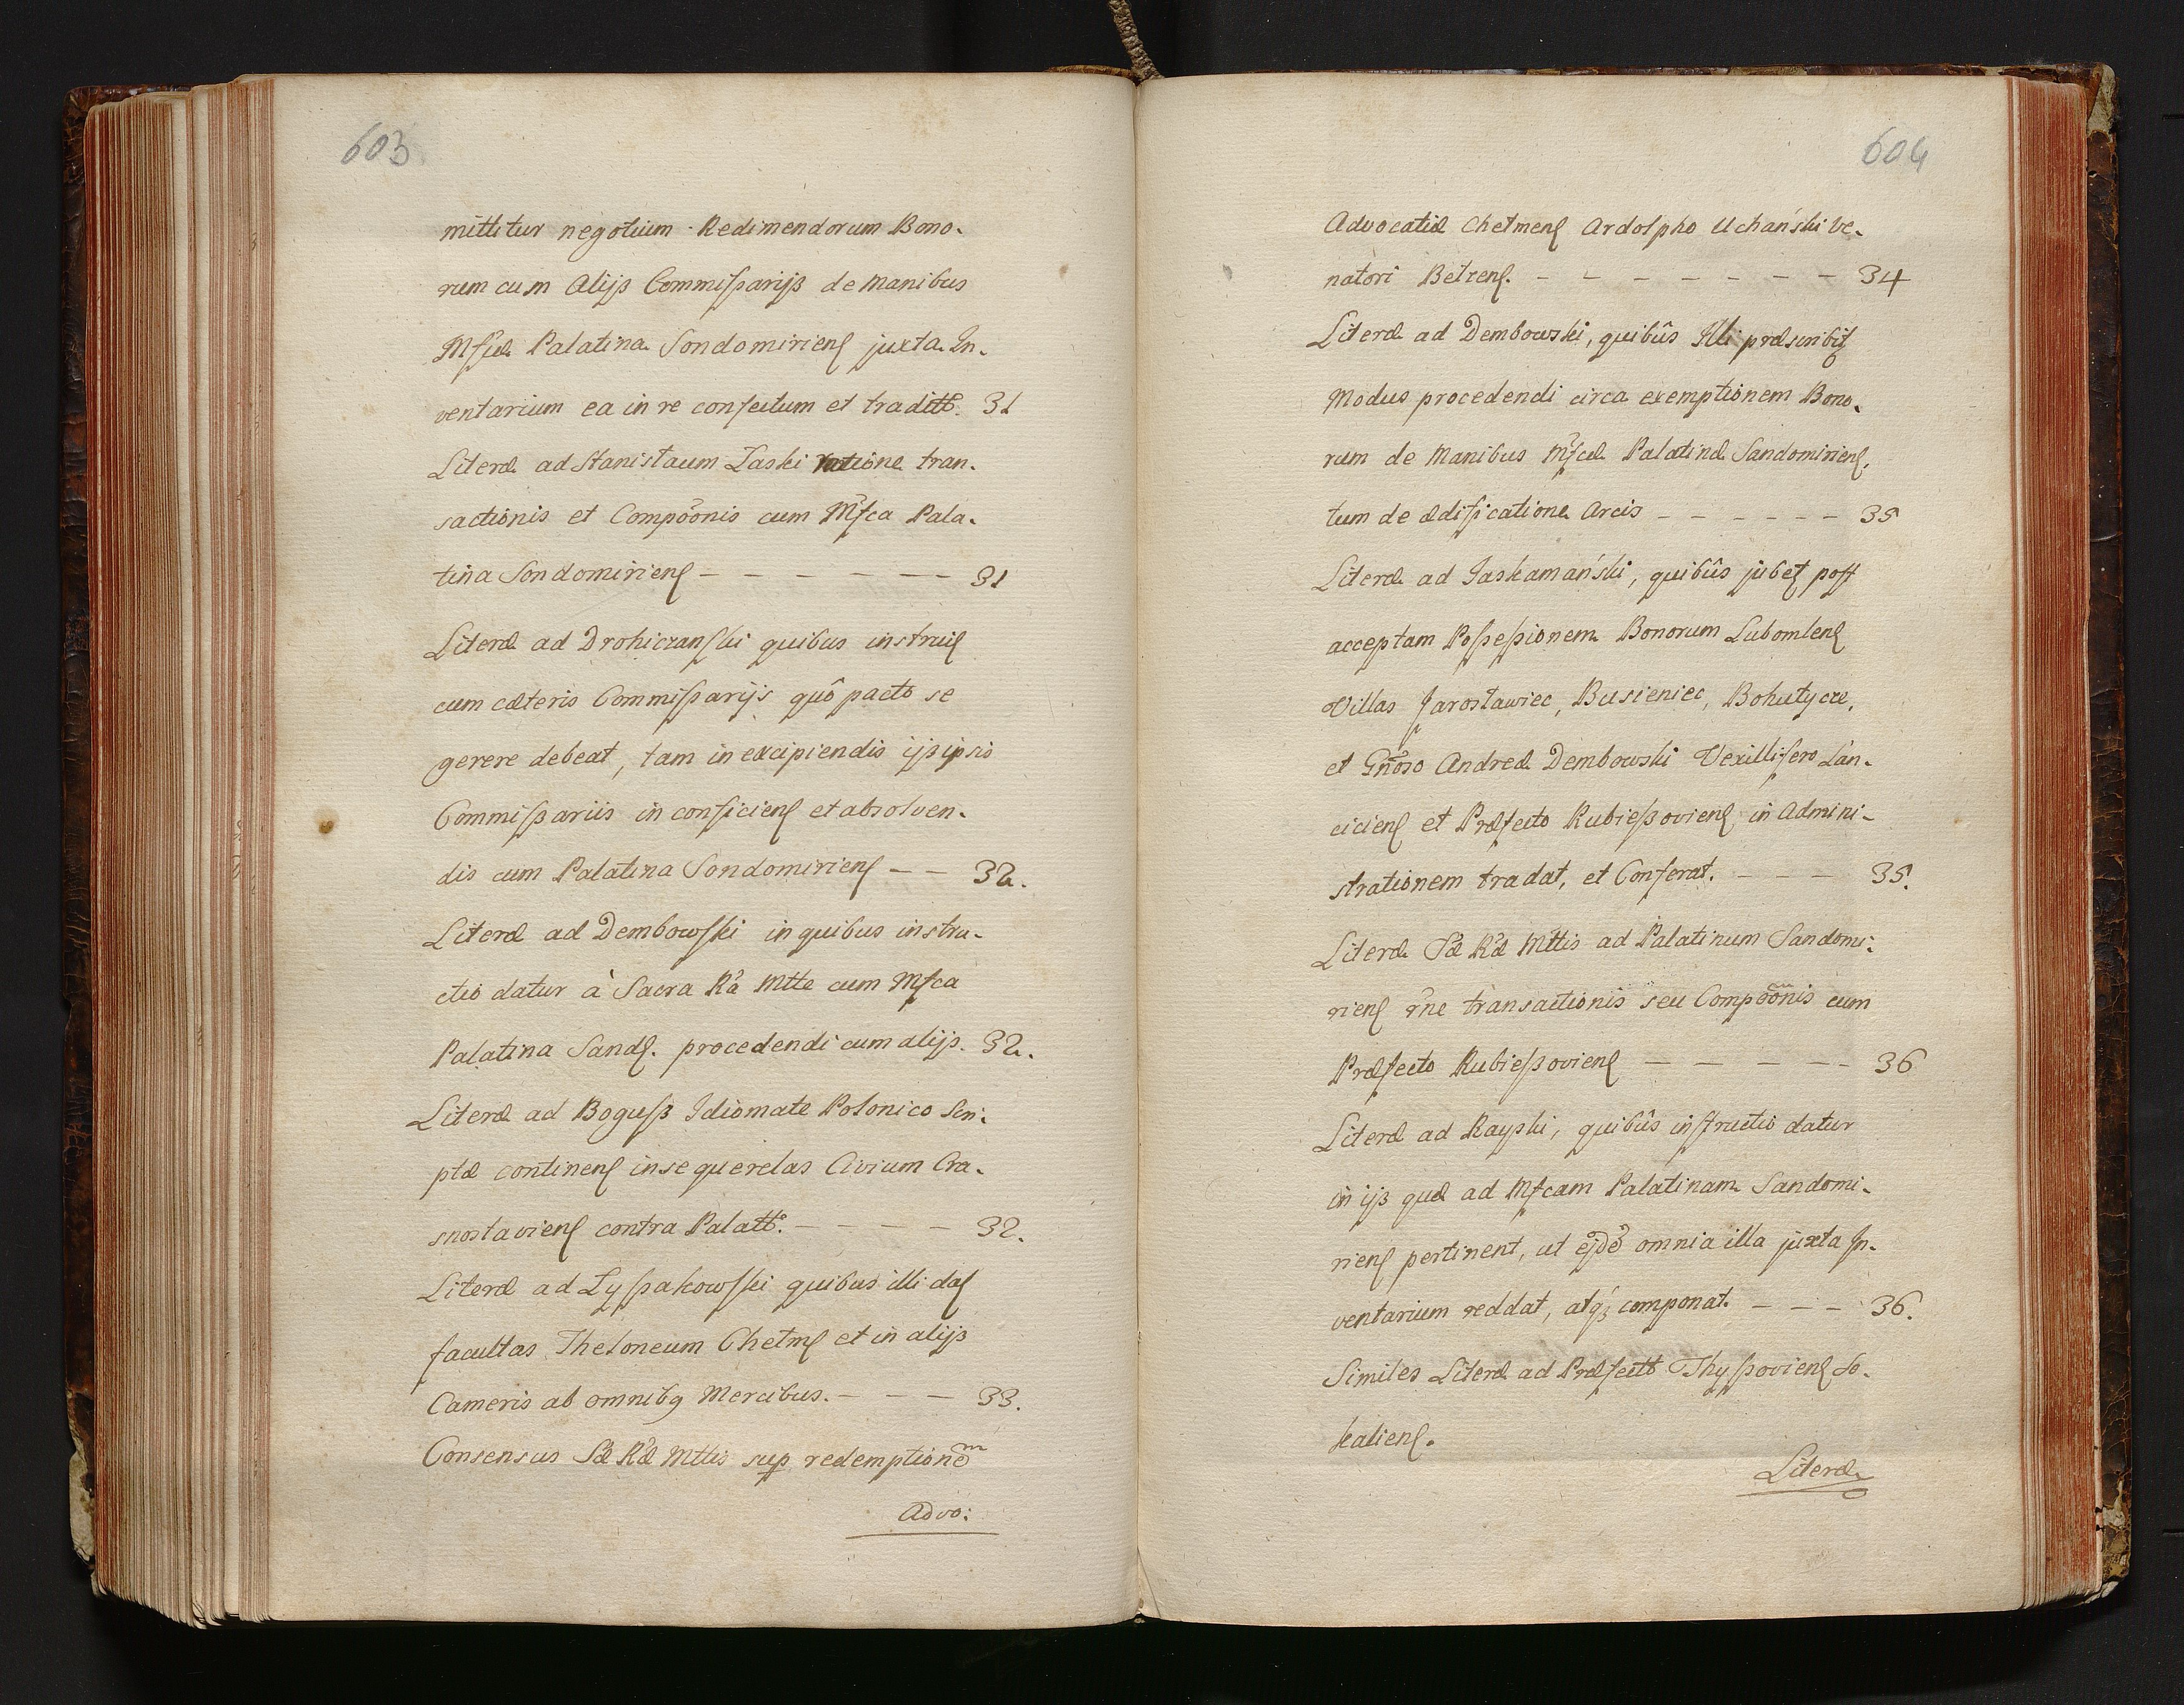 603
mittitur negotium Redimendorum Bono-
rum cum Alijß Commißarijß de Manibus
Mfcæ Palatina Sondomirienʃ juxta In-
ventarium ea in re confectum et traditt. 31
Literæ ad Stanisłaum Łaski ratione tran-
sactionis et Compõonis cum Mfca Pala-
tina Sondomirienʃ - - - - - - - 31
Literæ ad Drohiczanſki quibus instruiʃ
cum cæteris Commißarijs quô pacto se
gerere debeat, tam in excipiendis ijs ipsis
Commißariis in conficienʃ et absolven-
dis cum Palatina Sondomirienʃ - - 32.
Literæ ad Dembowſki in quibus instru-
ctio datur à Sacra Ra Mtte cum Mfca
Palatina Sandʃ. procedendi cum alijs. 32.
Literæ ad Boguß Idiomate Polonico Scri-
ptæ continenʃ in se querelas Civium Cra-
snostavienʃ contra Palatt. - - - - 32.
Literæ ad Lyßakowſki quibus illi daʃ
facultas Theloneum Chełmʃ et in alijß
Cameris ab omnibꝯ Mercibus. - - - 33.
Consensus Sæ Ræ Mttis sup redemptionẽm
Advo:
604
Advocatiæ Chełmenʃ Ardolpho Uchański Ve-
natori Bełzenʃ. - - - - - - - 34
Literæ ad Dembowski, quibûs Illi præscribiʃ
Modus procedendi circa exemptionem Bono-
rum de Manibus Mfcæ Palatinæ Sandomirienʃ,
tum de ædificatione Arcis - - - - - - 35
Literæ ad Jaskamański, quibûs jubeʃ poſt
acceptam Poßeßionem Bonorum Lubomlenʃ
Villas Jarosławiec, Busieniec, Bohutycze,
et Gñoso Andreæ Dembowski Vexillifero Łan-
cicienʃ et Præfecto Rubießovienʃ in Admini-
strationem tradat, et Conferat. - - - 35.
Literæ Sæ Ræ Mttis ad Palatinum Sandomi-
rienʃ rñe transactionis seu Compõonis cum
Præfecto Rubießovienʃ - - - - - 36
Literæ ad Rayski, quibûs inſtructio datur
in ijß quæ ad Mfcam Palatinam Sandomi-
rienʃ pertinent, ut ejdẽ omnia illa juxta In-
ventarium reddat, atqꝫ componat. - - - 36.
Similes Literæ ad Præfectt Thyßovienʃ So-
kalienʃ.
Literæ